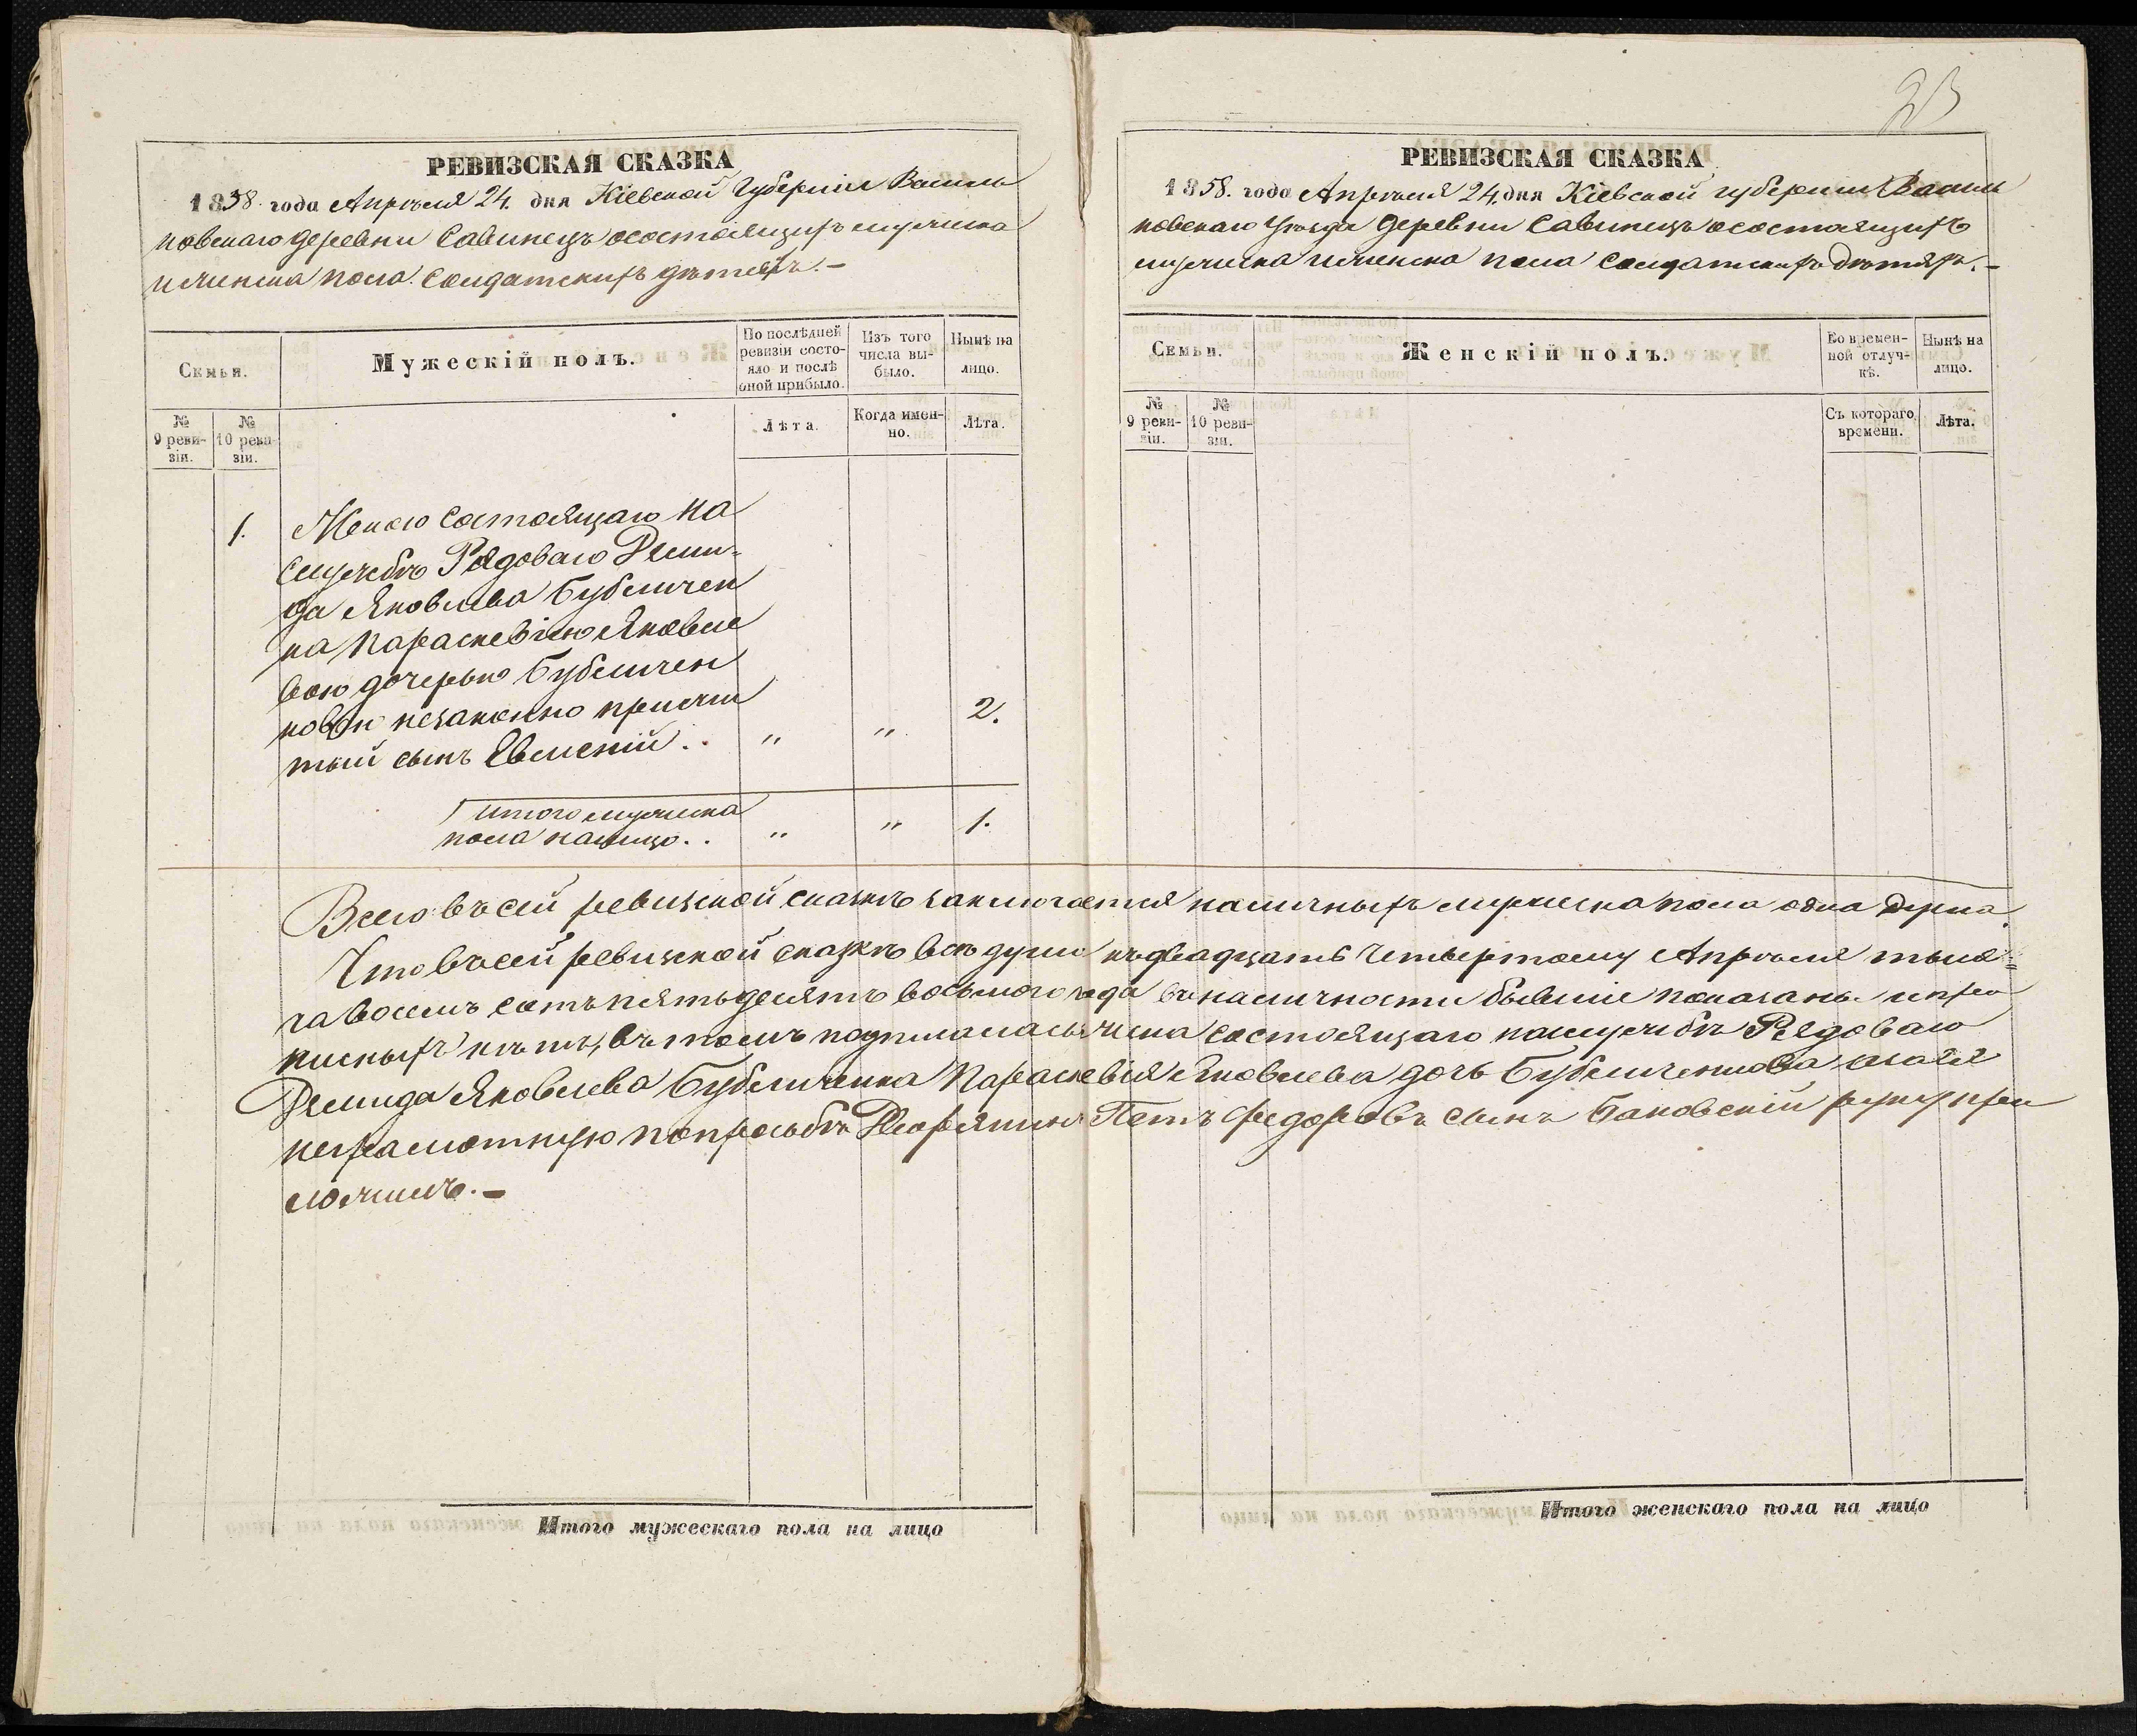 23
РЕВИЗСКАЯ СКАЗКА
1858. года Апрѣля 24. дня Кіевской Губерніи Василь
ковскаго деревни Савинецъ осостоящихъ мужеска
и женска пола. Солдатскихъ дѣтяхъ. —
Семьи.
Мужескій полъ.
По послѣдней
ревизіи состо-
яло и послѣ
оной прибыло.
Изъ того
числа вы-
было.
Нынѣ на
лицо.
№
9 реви-
зіи.
№
10 реви-
зіи.
Лѣта.
Когда имен-
но.
Лѣта.
1. Женою состоящаго на
службѣ Рядоваго Деми-
да Яковлева Бубличен
ка Параскевіею Яковле
вою дочерью Бубличен
ковою незаконно прижи
тый сынъ Евменій . . " " 2.
Итого мужеска
пола налицо . . " " 1.
РЕВИЗСКАЯ СКАЗКА
1858. года Апрѣля 24. дня Кіевской губерніи Василь
ковскаго Уѣзда деревни Савинецъ осостоящихъ
мужеска и женска пола Солдатскихъ дѣтяхъ. —
Семьи.
Женскій полъ.
Во времен-
ной отлуч-
кѣ.
Нынѣ на
лицо.
№
9 реви-
зіи.
№
10 реви-
зіи.
Съ котораго
времени.
Лѣта.
Всего въ сей ревизской сказкѣ заключается наличныхъ мужеска пола одна душа.
Что въ сей ревизской сказкѣ всѣ души къ двадцать четвертому Апрѣля тыся-
ча восемь сотъ пятьдесятъ восьмого года въ наличности бывшіе показаны и про
писныхъ нѣтъ, въ томъ подписалась жена состоящаго на службѣ Рядоваго
Демида Яковлева Бубличенка Параскевія Яковлева дочь Бубличенкова
неграмотную по просьбѣ Дворянинъ Федоровъ сынъ Баковскій руку при
ложилъ. —
Итого мужескаго пола на лицо
Итого женскаго пола на лицо